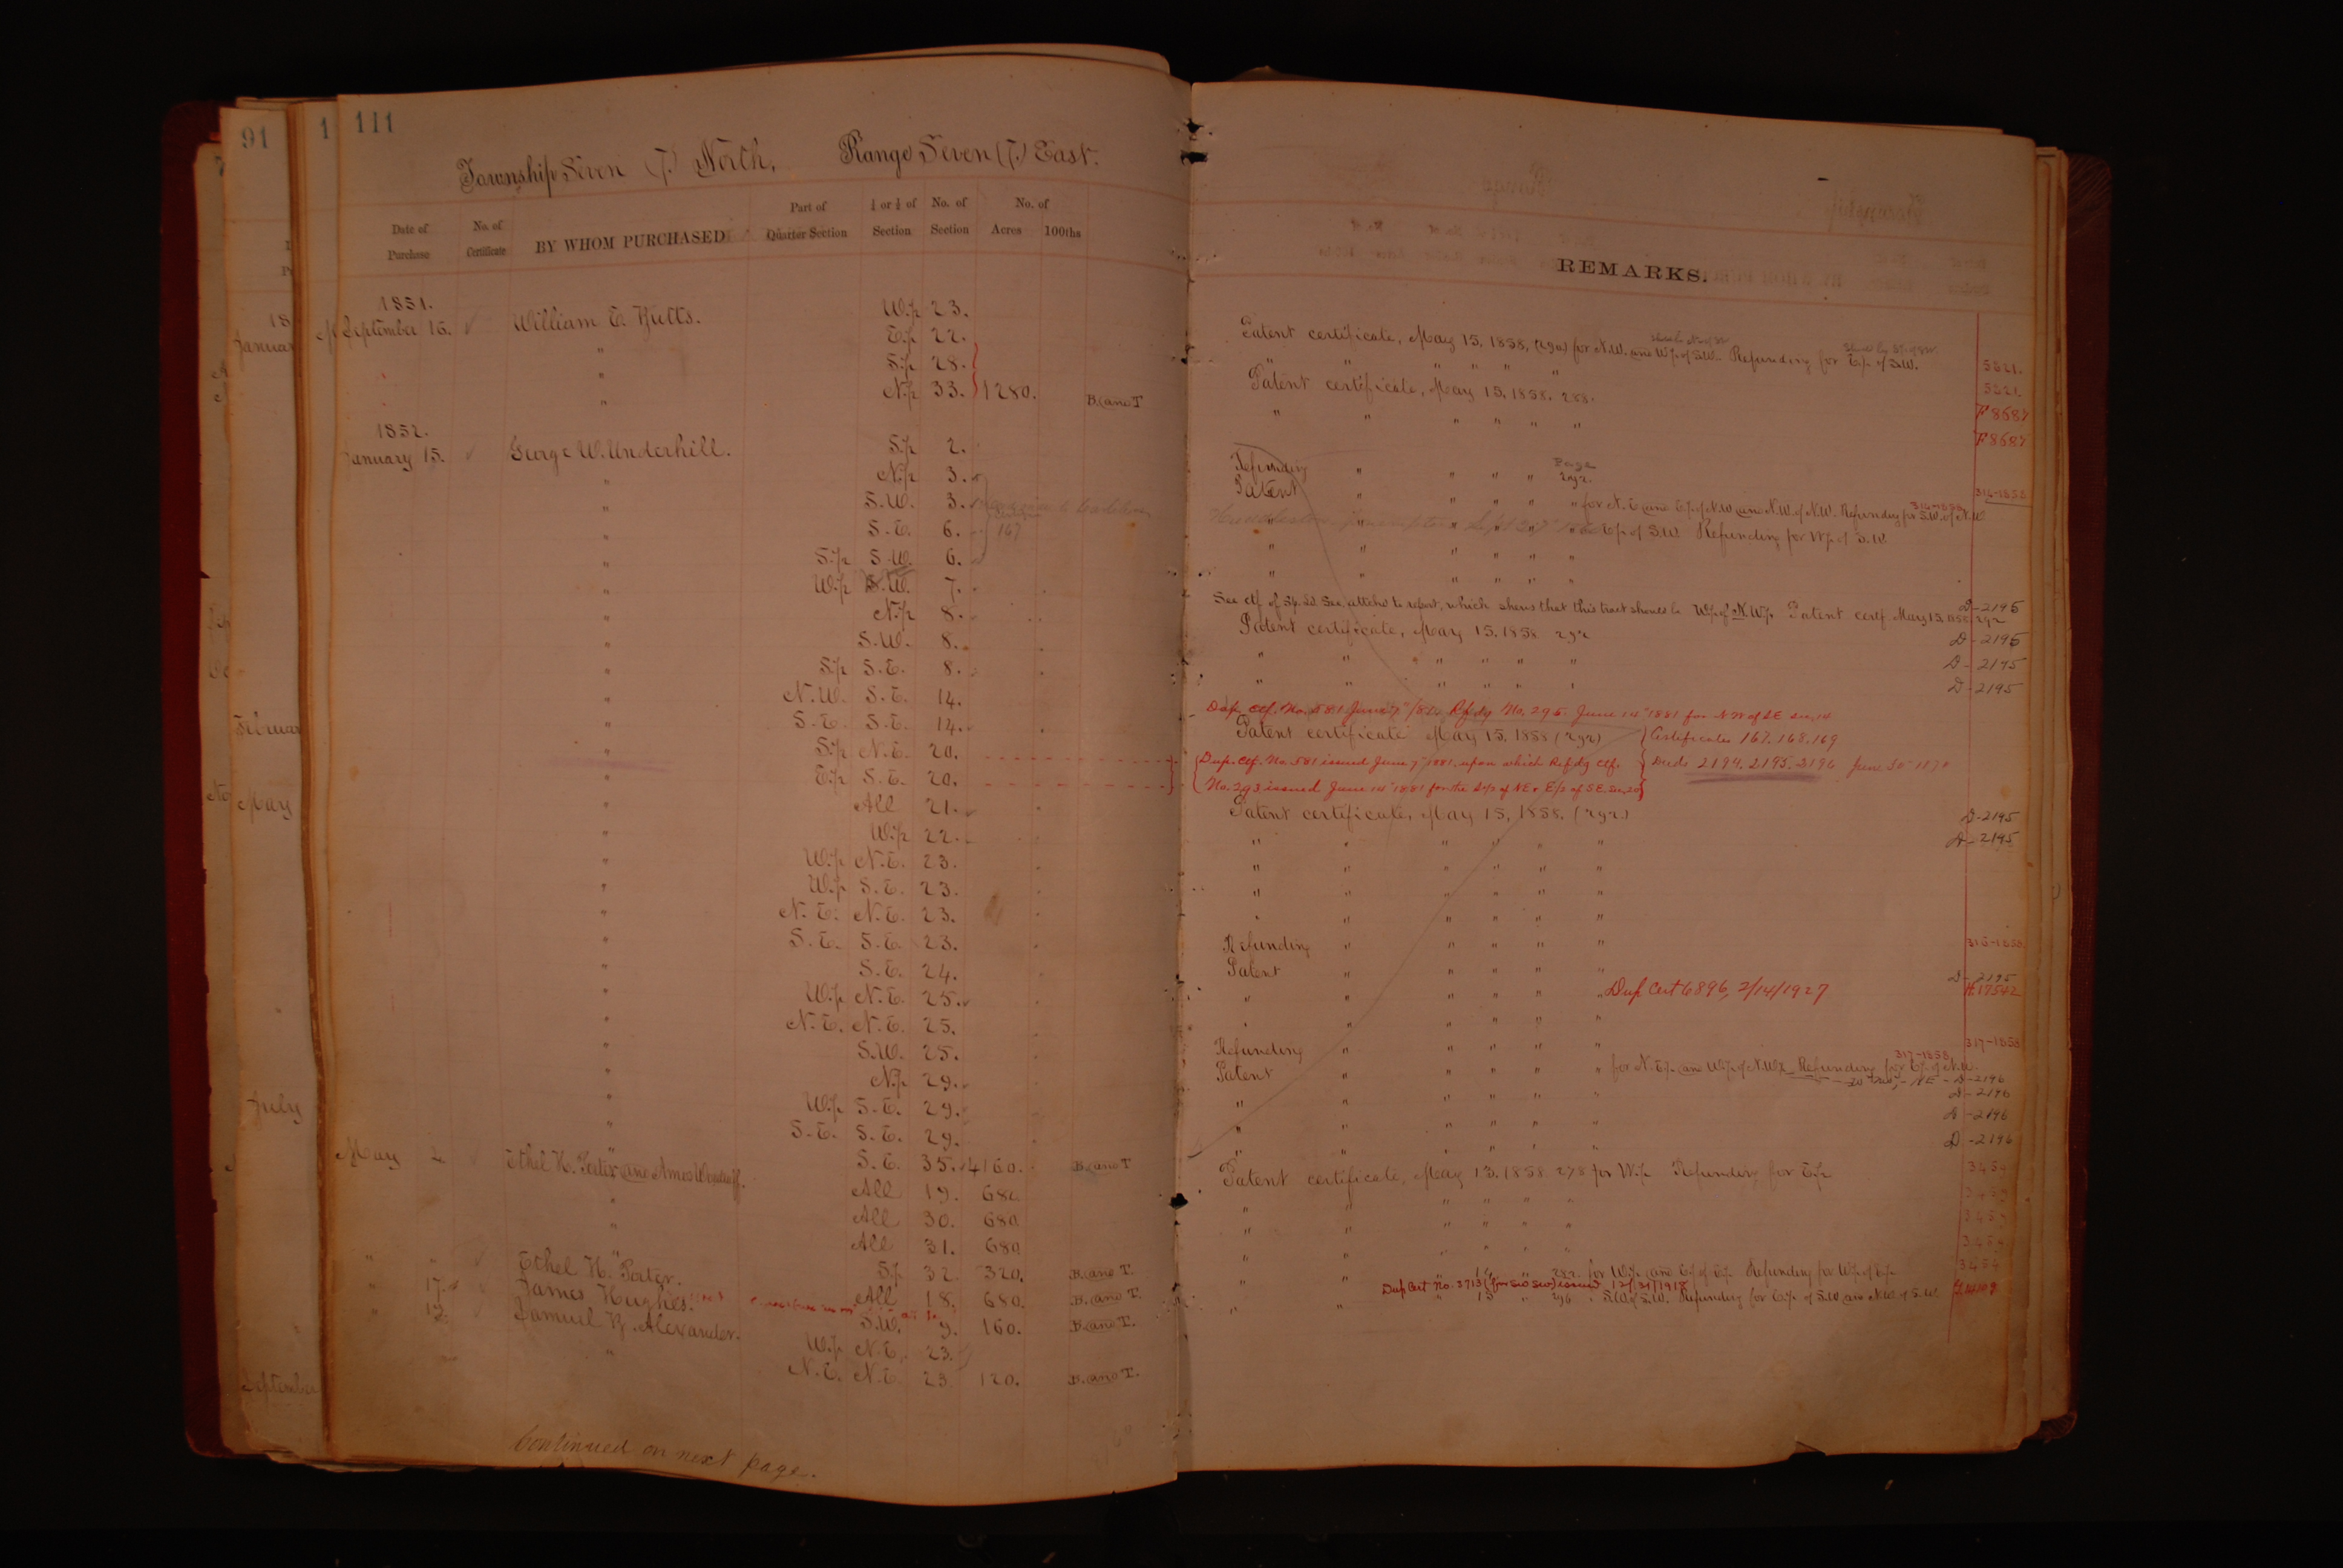 91
1
111
Township Seven (7.) North, Range Seven (7.) East.
Date of Purchase
No. of Certificate
BY WHOM PURCHASED
Part of Quarter Section
½ or ¼ of Section
No. of Section
No. of
Acres 100ths
1851.
September 15. William E. Butts. W.½ 23.
" E.½ 22.
" S.½ 28.
" N.½ 33. 1280. B. and T
1852.
January 15. George W. Underhill. S.½ 2.
" N.½ 3.
" S.W. 3.
" S.E. 6. 167
" S.½ S.W. 6.
" W.½ S.W. 7.
" N.½ 8.
" S.W. 8.
" S.½ S.E. 8.
" N.W. S.E. 14.
" S.E. S.E. 14.
" S.½ N.E. 20.
" E.½ S.E. 20.
" All 21.
" W.½ 22.
" W.½ N.E. 23.
" W.½ S.E. 23.
" N.E. N.E. 23.
" S.E. S.E. 23.
" S.E. 24.
" W.½ N.E. 25.
" N.E. N.E. 25.
" S.W. 25.
" N.½ 29.
" W.½ S.E. 29.
" S.E. S.E. 29.
" S.E. 35. 4160. B. and T
May 2 Ethel H. Porter and Amos Woodruff. All 19. 680
" All 30. 680
" All 31. 680
" S.½ 32. 320. B. and T.
" " Ethel H. Porter. All 18. 680. B. and T.
" 17. James Hughes. S.W. 9. 160. B. and T.
" 19. Samuel B. Alexander. W.½ N.E. 23.
" N.E. N.E. 23 120. B. and T.
Continued on next page.
January
February
May
July
September
REMARKS.
Patent certificate, May 15, 1858, (290) for N.W. and W.½ of S.W. Refunding for E.½ of S.W. 5521.
" " " " " " 5521.
Patent certificate, May 15, 1858. 288. F 8687
" " " " " " F 8687
Refunding " " " " Page 292. 316-1858
Patent " " " " " for N.E and E.½ of N.W. and N.W. of N.W. Refunding for S.W. of N.W 316-1858
" " " " " " E.½ of S.W. Refunding for W.½ of S.W
" " " " " "
" " " " " "
See ctf of Sp. Ld. Sec. attached to report, which shows that this tract should be W.½ of N.W.¼ Patent certf. May 15, 1858, 292 D-2195
Patent certificate, May 15, 1858 292 D-2195
" " " " " " D-2195
" " " " " " D-2195
Dup. Ctf. No. 581 June 7" /81. Rfdg No. 295. June 14" 1881 for NW of SE Sec. 14
Patent certificate May 15, 1858 (292) Certificates 167, 168, 169
Dup. Ctf. No. 581 issued June 7" 1881, upon which Refdg Ctf. Deeds 2194, 2195, 2196 June 30
No. 293 issued June 14" 1881 for the S½ of NE & E/2 of SE. Sec. 20
Patent certificate, May 15, 1858. (292) D-2195
" " " " " " D-2195
" " " " " "
" " " " " "
" " " " " "
Refunding " " " " " 316-1858
Patent " " " " " D-2195
" " " " " " Dup Cert 6896, 2/14/1927 H.17542
" " " " " "
Refunding " " " " " 317-1858
Patent " " " " " for N.E.¼ and W.½ of N.W.¼ Refunding for E.½ of N.W. 317-1858
D-2196
" " " " " " D-2196
" " " " " " D-2196
" " " " " " D-2196
Patent certificate, May 13, 1858 278 for W.½ Refunding for E.½ 3459
" " " " " " 3459
" " " " " " 3459
" " " " " " 3459
" " " 14 " 282 for W.½ and E.½ of E.½ Refunding for W.½ of E.½ 3459
Dup Cert No. 3713 (for SW SW) issued 12/31/1918
" " " 15 " 296 " S.W. of S.W. Refunding for E.½ of S.W and N.W. of S.W.